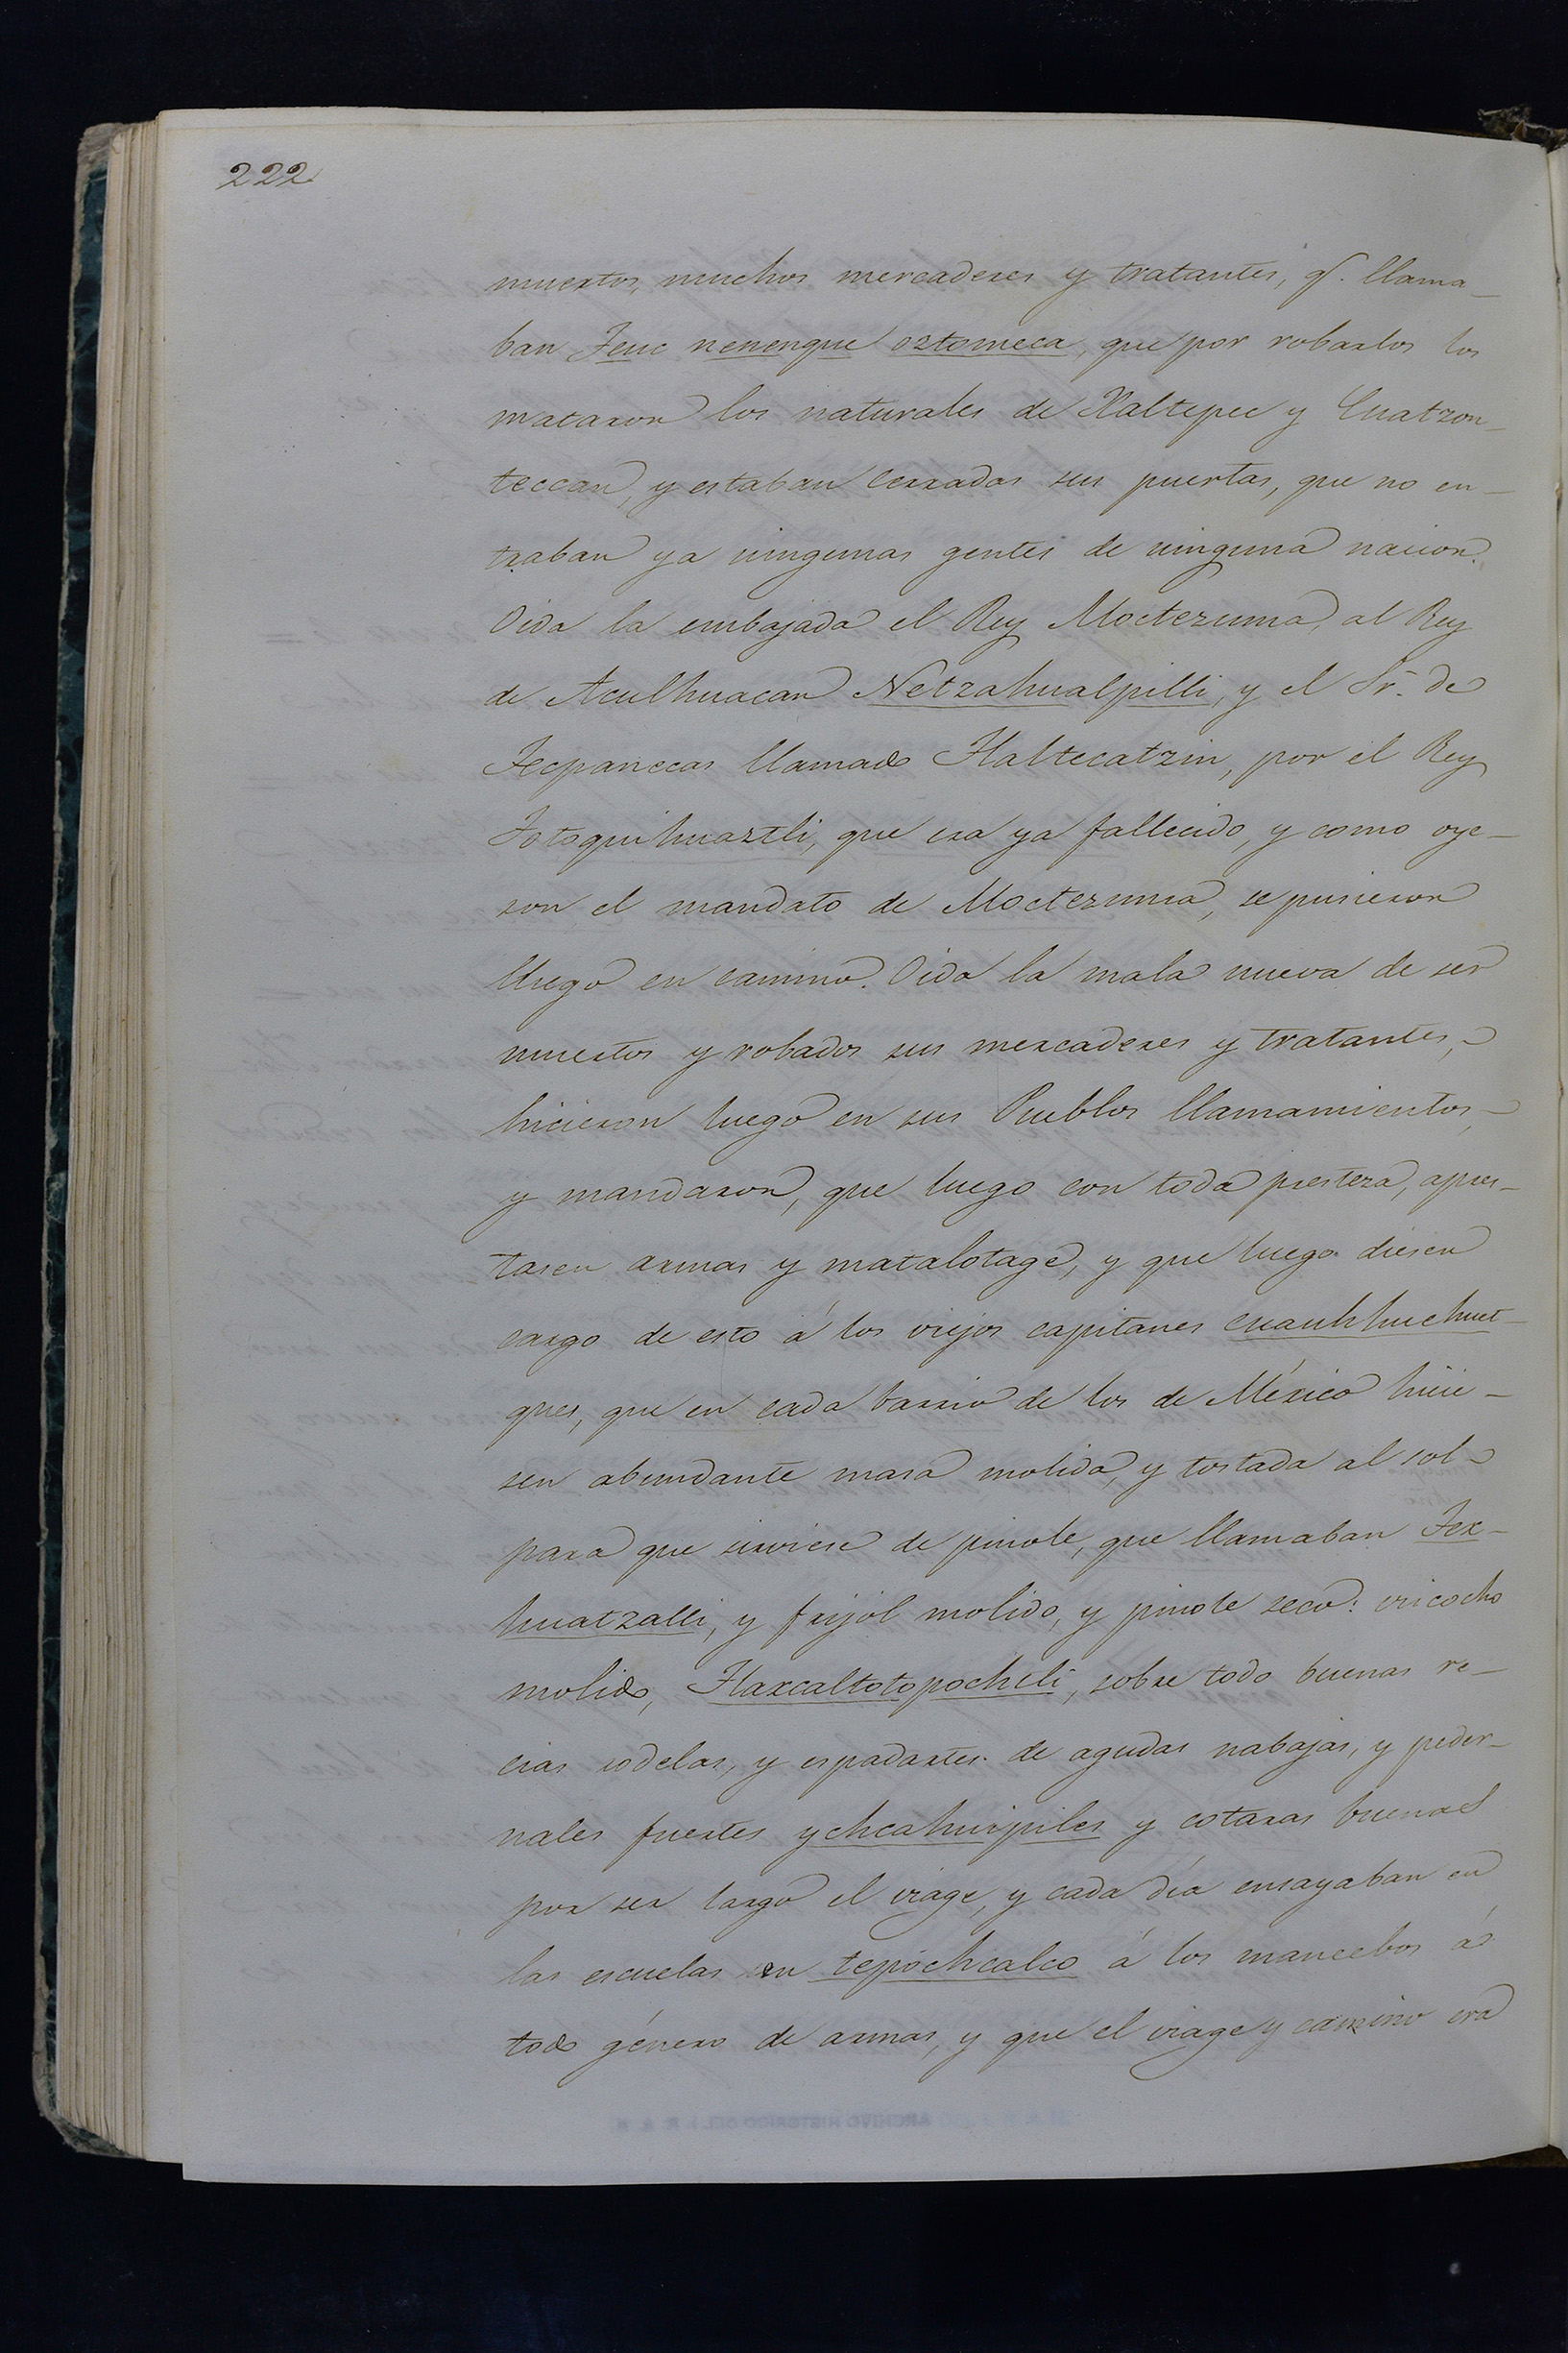 222
muertos, muchos mercaderes y tratantes, q.e llama-
ban Teuc nenenque oztomeca, que por robarlos los
mataron los naturales de Xaltepec y Cuatzon-
teccan, y estaban cerradas sus puertas, que no en-
traban ya ningunas gentes de ninguna nacion.
Oida la embajada el Rey Moctezuma, al Rey
de Aculhuacan Netzahualpilli, y el Sr. de
Tecpanecas llamado Tlaltecatzin, por el Rey
Totoquihuaztli, que era ya fallecido, y como oye-
ron el mandato de Moctezuma, se pusieron
luego en camino. Oida la mala nueva de ser
muertos y robados sus mercaderes y tratantes,
hicieron luego en sus Pueblos llamamientos,
y mandaron, que luego con toda presteza, apres-
tasen armas y matalotage, y que luego diesen
cargo de esto á los viejos capitanes cuauhhuehuet-
ques, que en cada barrio de los de México hicie-
sen abundante masa molida, y tostada al sol
para que sirviese de pinole, que llamaban Tex-
huatzalli, y frijol molido, y pinole seco: viscocho
molido, Tlaxcaltotopochtli, sobre todo buenas re-
cias rodelas, y espadartes de agudas nabajas, y peder-
nales fuertes ychcahuipiles y cotaras buenas
por ser largo el viage, y cada día ensayaban en
las escuelas en tepochcalco á los mancebos á
todo género de armas, y que el viage y camino era